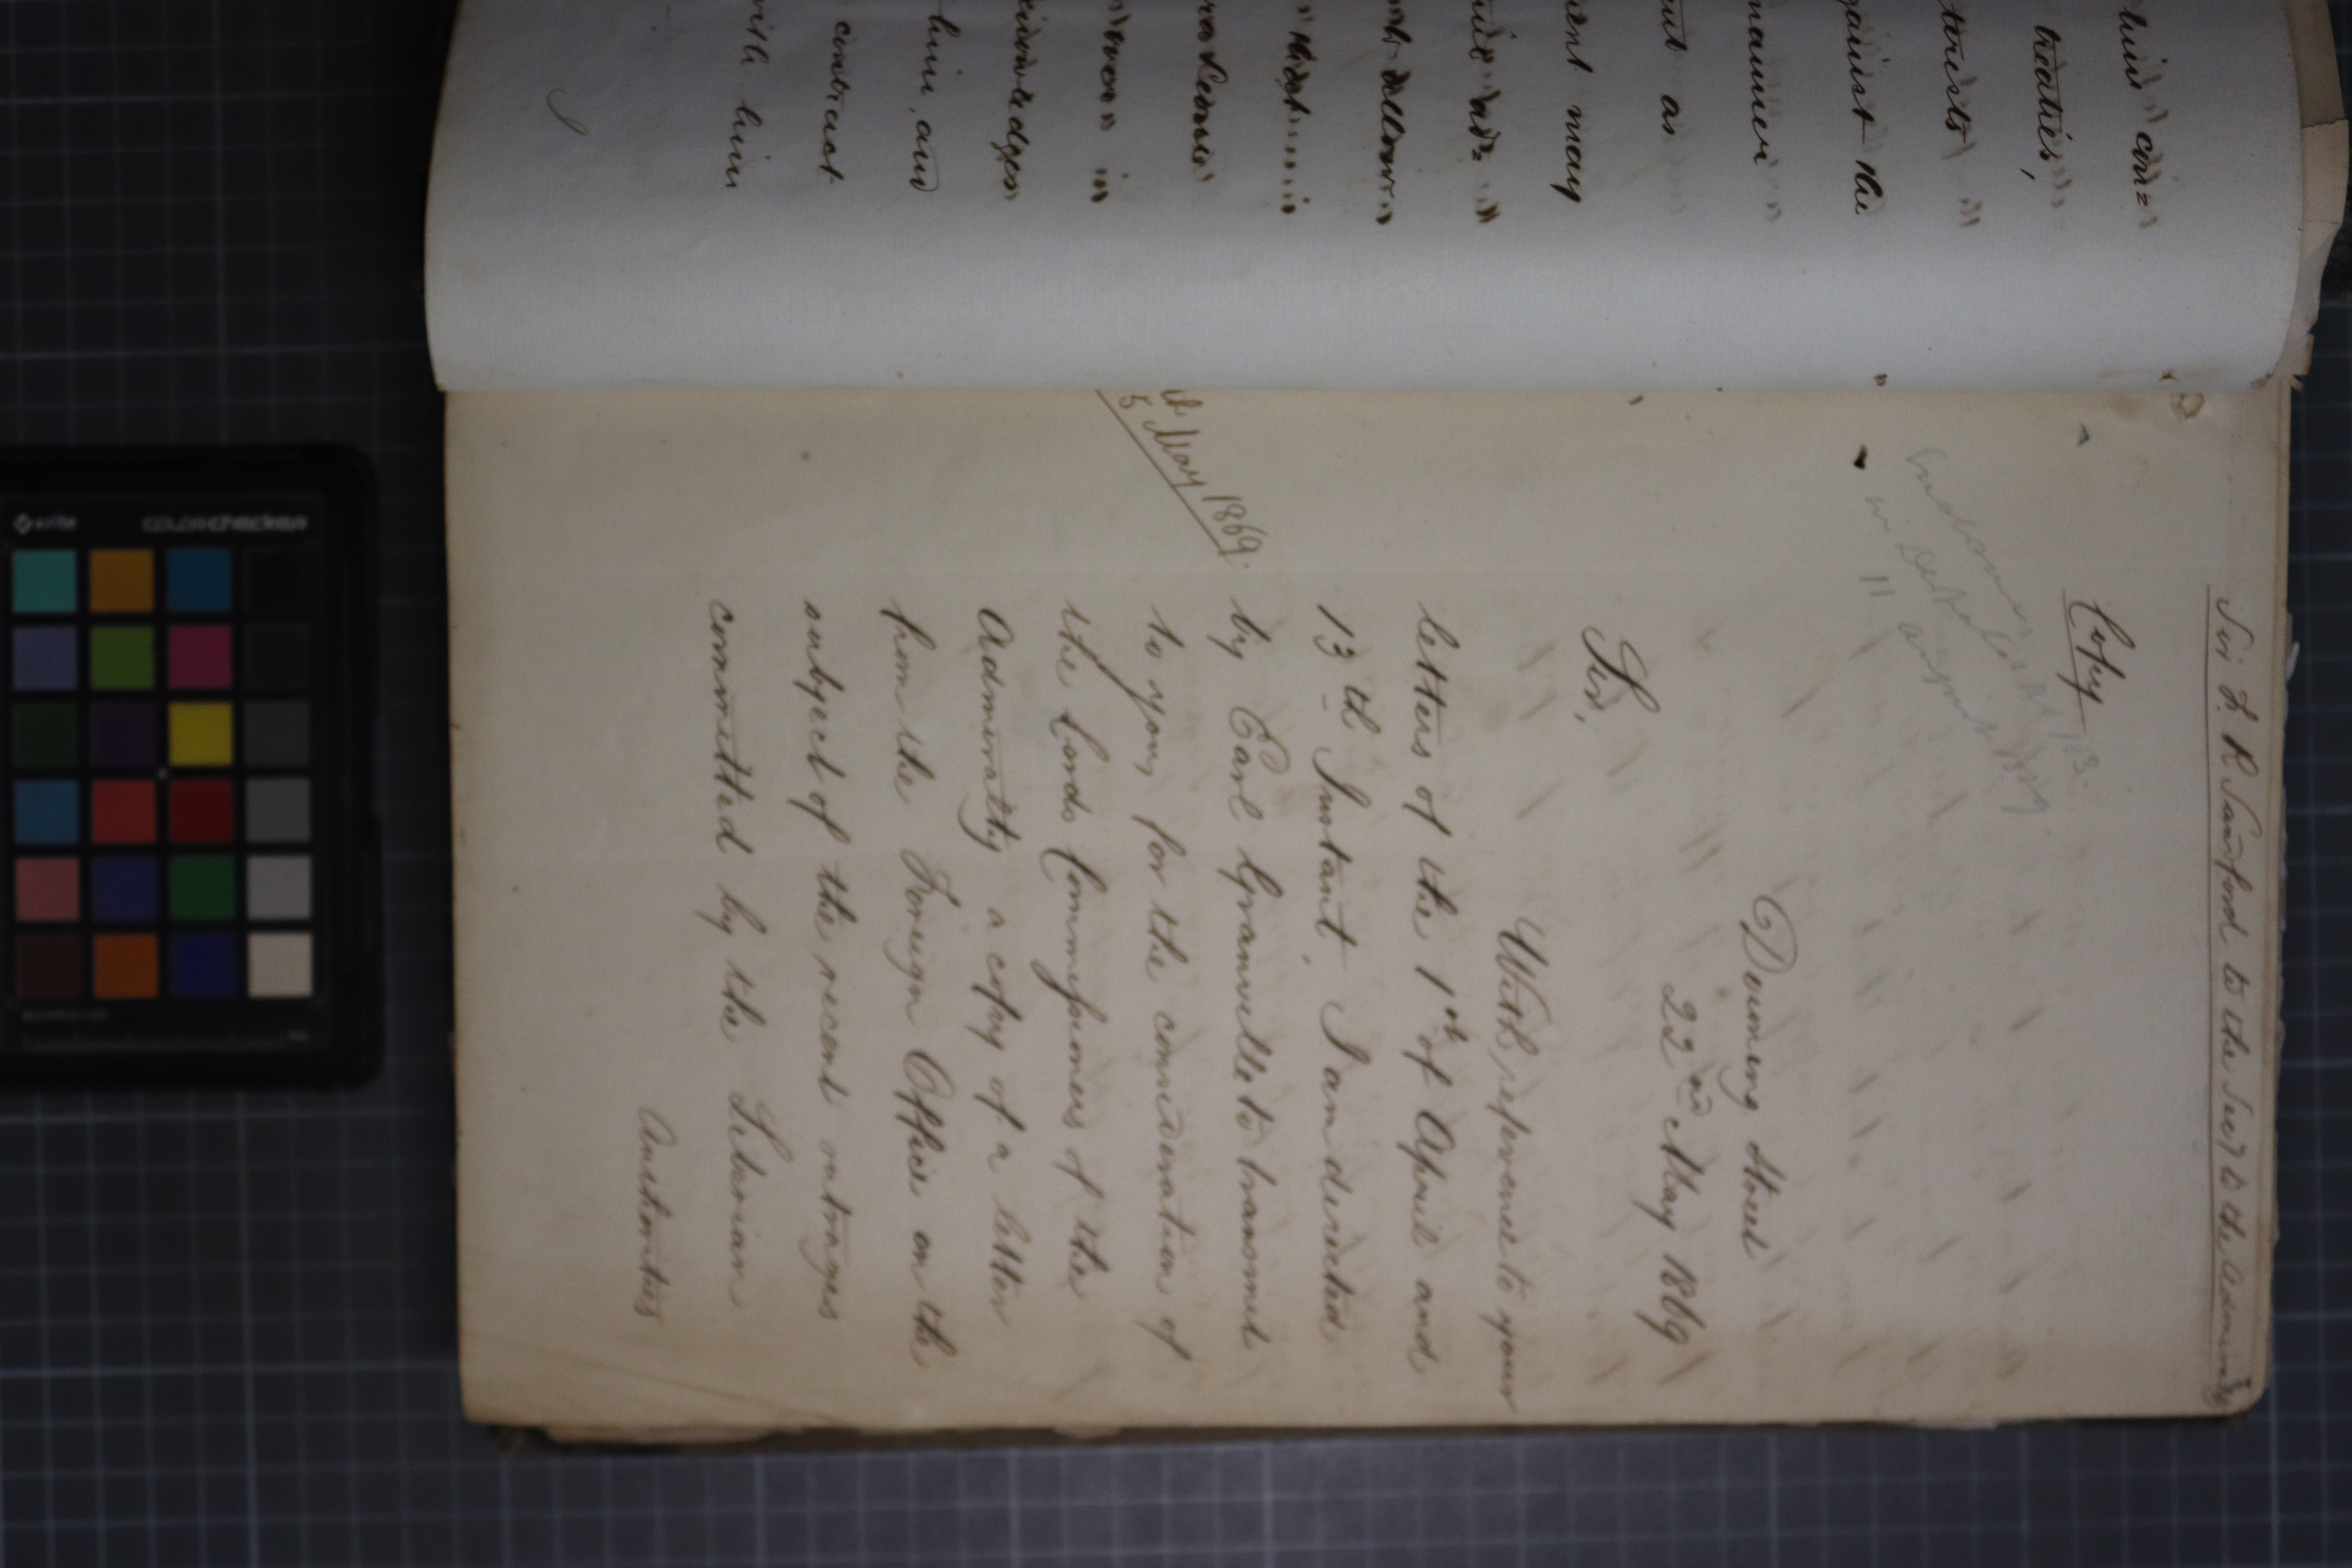 his con=
treaties,
terests
gainst the
manner
ent as
ent may
him, and
contract
with him
Sir F. R. Sandford to the Secy to the Admiralty
Copy
Downing Street
22nd May 1869
Sir,
With reference to your
letters of the 1st of April and
13th Instant, I am directed
by Earl Granville to transmit
to you, for the consideration of
the Lords Commissioners of the
Admiralty a copy of a letter
5 May 1869.
from the Foreign Office on the
subject of the recent outrages
committed by the Liberian
Authorities